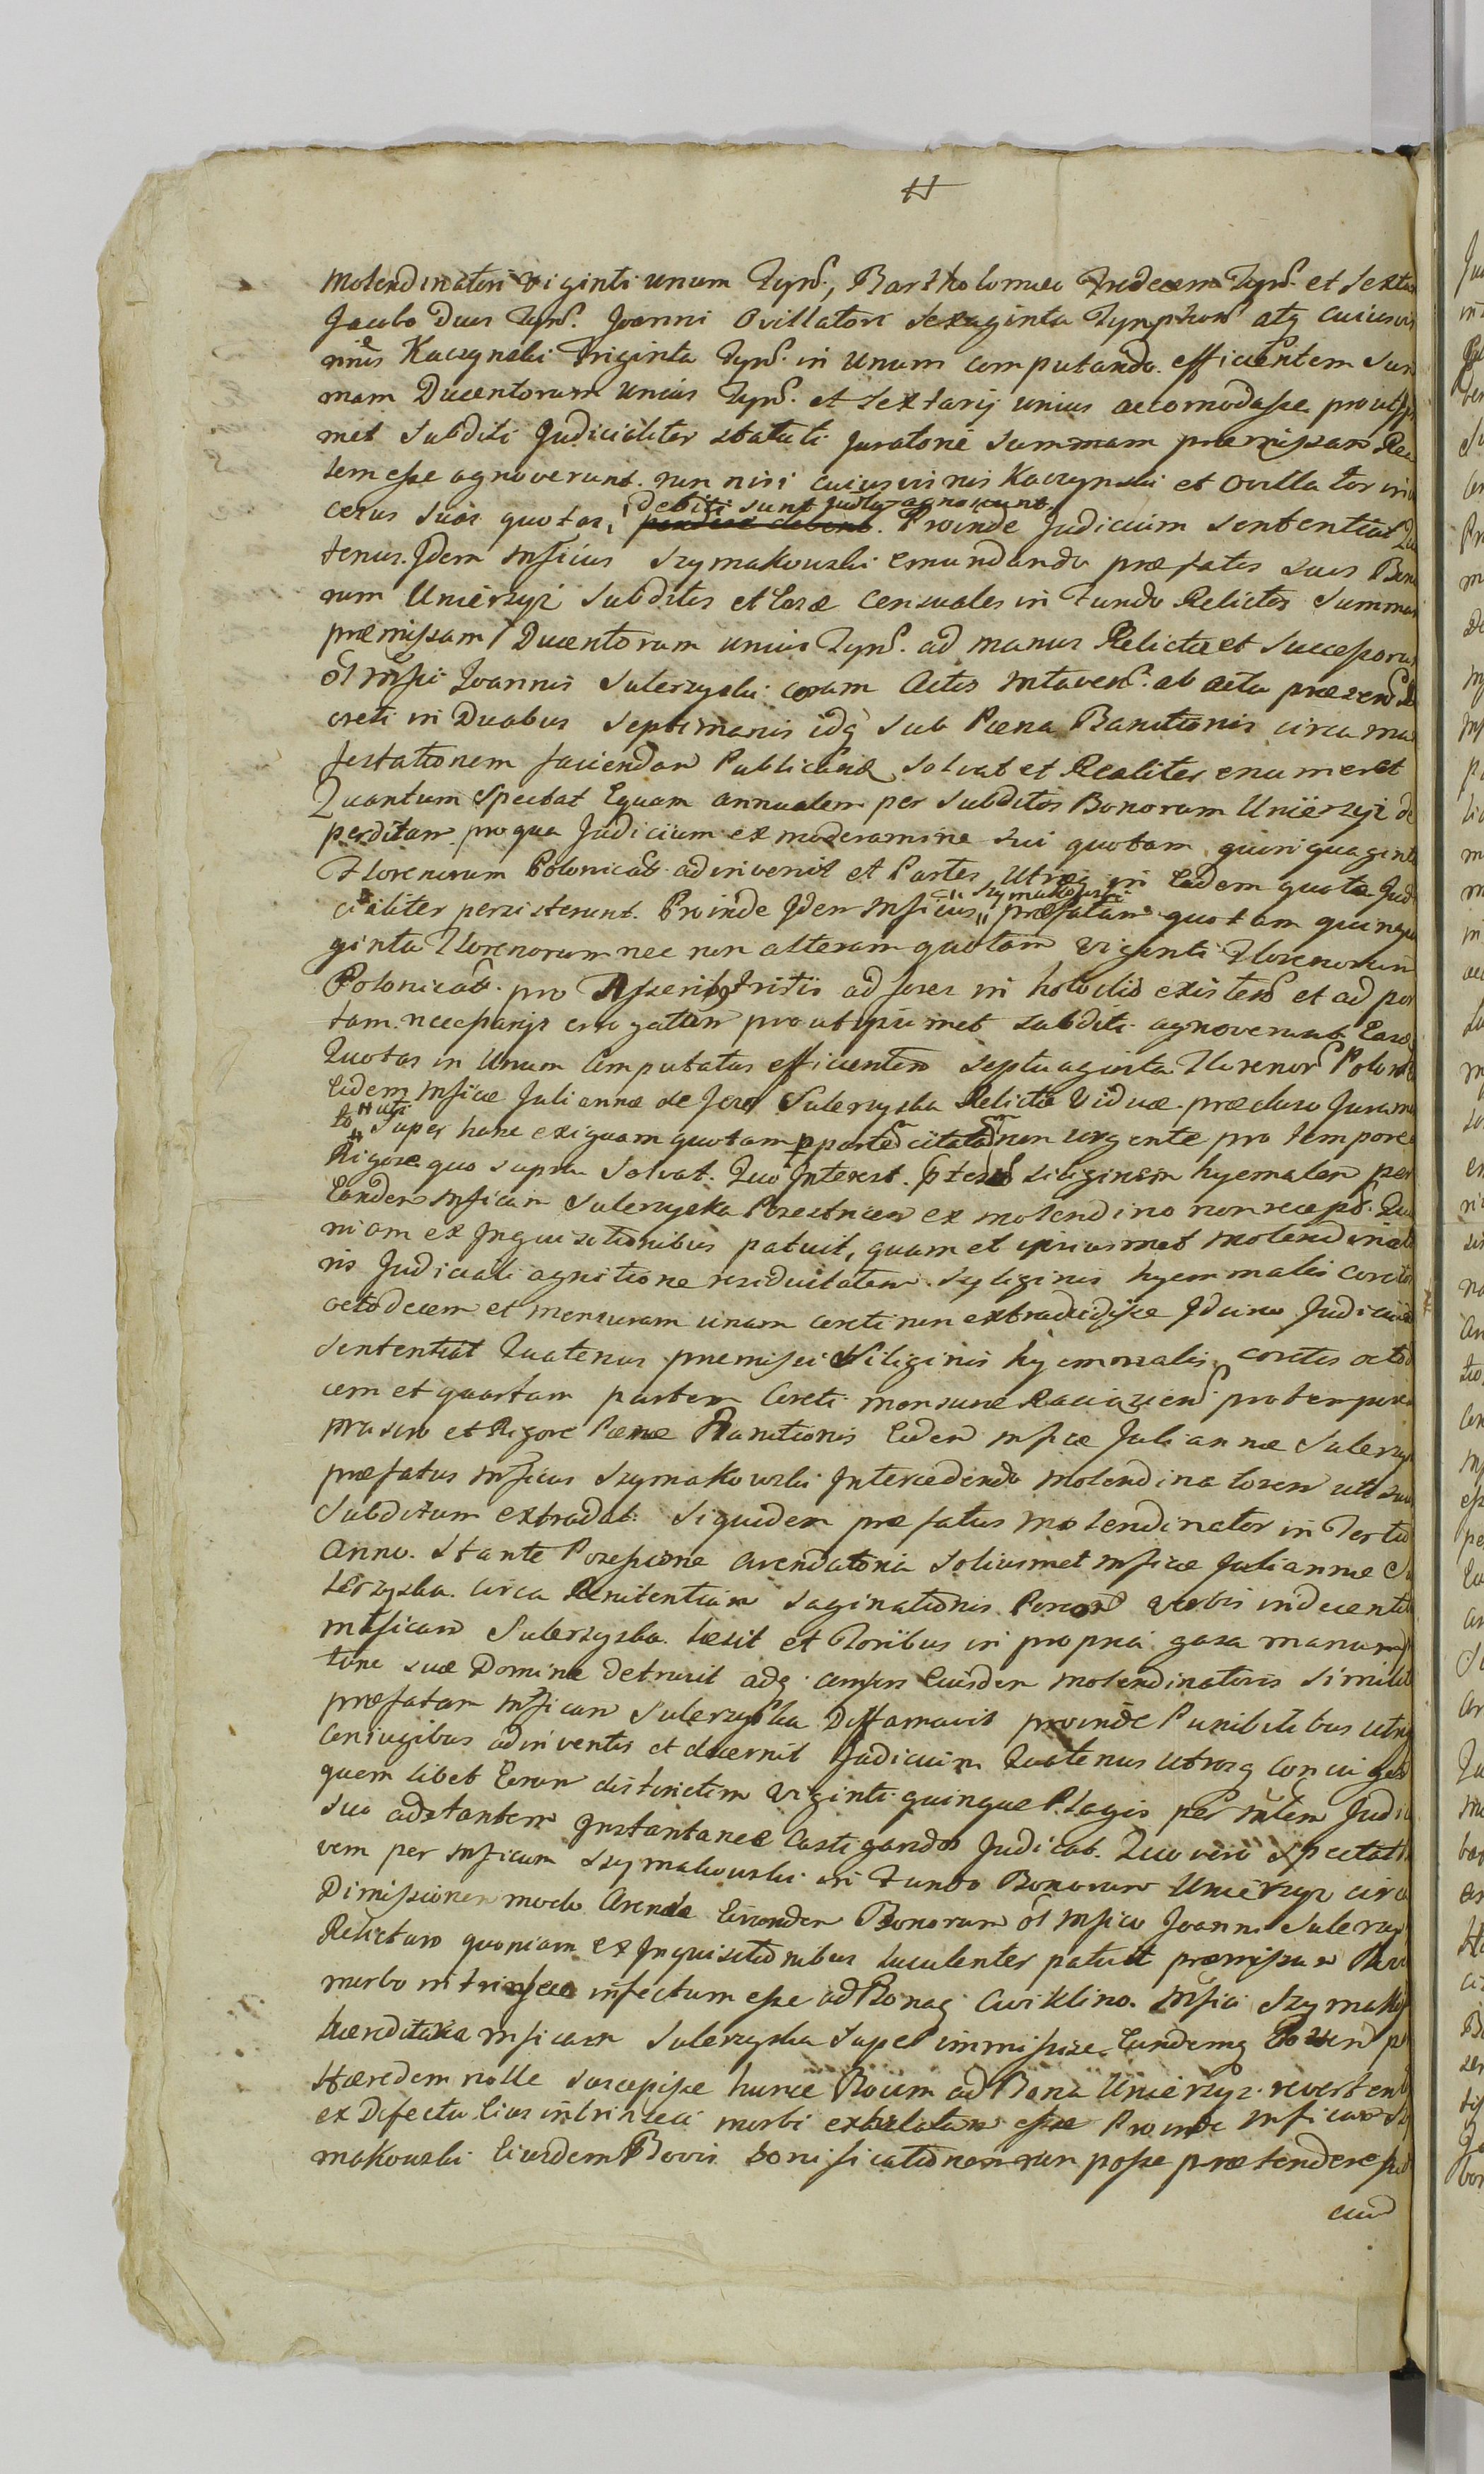 H
Molendinatori Viginti unum Tynf., Bartholomeo Tredecem Tynf. et Sexta
Jacobo Duos Tynf. Joanni Ovillatori Sexaginta Tynphon atq cuiusvis
nius Kaczynski Triginta Tynf. in Unum computando efficientem Sum
mam Ducentorum unius Tynf. et Sextarij unius accomodasse prout ipsi
met Subditi Judicialiter statuti Juratone Summam præmissam Rea
lem esse agnoverunt. non nisi cuiusvis nis Kaczynski et Ovillator
cerus suas quotas, debiti sunt agnoscunt Proinde Judicium sententiat Qua
tenus Idem Mficus Szymakowski emundando præfatis suis Bono
rum Unierzyż Subditis et Censuales in Fundo Relictos Summam
præmissam Ducentorum unius Tynf. ad manus Relictæ et Successorum
ol Mfici Joannis Sulerzyski coram Actis Mlaven. ab actu præsen De
creti in Duabus Septimanis idq Sub Pœna Banitionis circa ma
festationem faciendam Publicand solvat et Realiter enumeret
Quantum Spectat Equam annualem per Subditos Bonorum Unierzyż de
perditam pro qua Judicium ex moderamine sui quotam quinquaginta
Florenorum Polonical adinvenit et Partes Utræq in Eadem quota Judi
cialiter persisterunt. Proinde Idem Mficus Szymakowski præfatam quotam quinqua
ginta Florenorum nec non alteram quotam viginti Florenorum
Polonical. pro Asseribus Tritis ad fores in existen et ad por
tam necessarijs erogatam prout ipsimet subditi agnoverunt Easq
Quotas in Unum Computatas efficientem Septuaginta Florenor Polon
Eidem Mficæ Juliannæ de Sulerzyska Relictæ Viduæ præcluso Jurame
to Super hanc exiguam quotam p parte citata non urgente pro tempore
Rigore quo supra Solvat. Quo Interest siliginem hyemalem per
Eandem Mficam Sulerzyska Posestricem ex molendino non recept. Quo
niam ex Inquisitionibus patuit, quam et ipsiusmet molendinato
ris Judiciali agnitione residuitatem Syliginis hyemmalis coretos
octodecem et mensuram unam coreti non extradidisse Idcirco Judicium
Sententiat Quatenus præmissi Siliginis hyemmalis coretos octode
cem et quartam partem Coreti mensuræ Raciązien pro tempore
præsenti et Rigore Pænæ Banitionis Eidem Mficæ Juliannæ Sulerzys
præfatus Mficus Szymakowski Intercedendo molendinatorem uti suum
Subditum extradat. Siquidem præfatus molendinator in Tertio
Anno Stante Posessione arendatoria Soliusmet Mficæ Juliannæ Su
lerzyska circa Renitentiam Saginationis Porcor Verbis indecentib
Mficam Sulerzyska læsit et foribus in propria gaza manum
tunc suæ Dominæ detrusit adq consors Eiusdem molendinatoris similit
præfatam Mficam Sulerzyska Diffamavit proinde Punibilibus utrisq
Coniugibus adinventis et decernit Judicium Quatenus Utrosq coniuges
quem libet Eorum distinctim viginti quinque Plagis per Judi
suo adstantem Instantanee castigandos Judicat. Quo vero Spectat
vem per Mficum Szymakowski in Fundo Bonorum Unierzyż circa
Dimissionem modo Arendæ Eorundem Bonorum ol Mfico Joanni Sulerzys
Relictum quoniam ex Inquisitionibus luculenter patuit præmissum Bov
morbo intrinseco infectum esse ad Bonaq Cwiklino Mfici Szymakow
hæreditaria Mficam Sulerzyska Super immisisse Eundemq Bovem p
Hæredem nolle suscepisse hunce Bovem ad Bona Unierzyż revertentem
ex Defectu Eius intrinseci morbi exhalatum esse Proinde Mficum Szy
makowski Eiusdem Bovis bonificationem non posse prætendere
cum